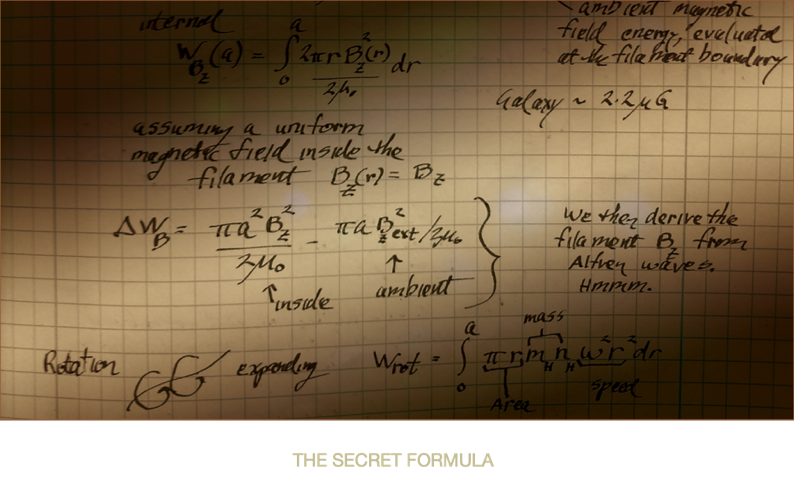 internal
W_{B_z}(a) = ∫_0^a 2πr B_z^2(r) / 2μ₀ dr
ambient magnetic
field energy, evaluated
at the filament boundary
Galaxy ~ 2.2 μG
assuming a uniform
magnetic field inside the
filament B_z(r) = B_z
ΔW_B = πa^2 B_z^2 / 2μ₀ - πa B_z^2 ext / 2μ₀
↑ inside
↑
ambient
We then derive the
filament B_z from
Alfven waves.
Hmmm.
Rotation
expanding
mass
W_rot = ∫_0^a πr m_H n_H ω^2 r^2 dr
Area
speed
THE SECRET FORMULA